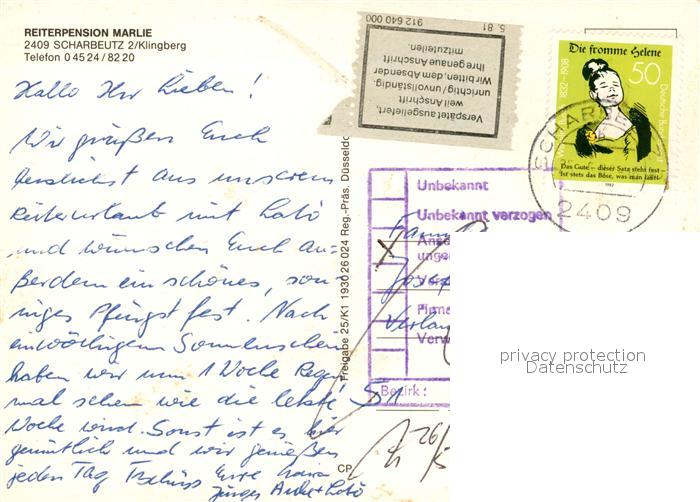 REITERPENSION MARLIE
2409 SCHARBEUTZ 2/Klingberg
Telefon 0 45 24 / 82 20
Hallo Ihr Lieben!
Wir grüßen Euch
herzlichst aus unserem
Reiterurlaub mit
und wünschen Euch au-
ßerdem ein schönes, son-
niges Pfingstfest. Nach
einwöchigem Sonnenschein
haben wir nun 1 Woche Regen
mal sehen wie die letzte
Woche wird. Sonst ist es hier
gemütlich und wir genießen
jeden Tag. Tschüss Eure
Jürgen
Freigabe 25/K1 1930 26 024 Reg.-Präs. Düsseldo
CP
5. 81
912 640 000
Verspätet ausgeliefert,
weil Anschrift
unrichtig / unvollständig.
Wir bitten, dem Absender
Ihre genaue Anschrift
mitzuteilen.
Die fromme Helene
50
1832-1908
Deutsche Bundespost
Das Gute – dieser Satz steht fest –
Ist stets das Böse, was man läßt!
1982
SCHARBEUTZ
2409
Unbekannt
Unbekannt verzogen
Firma
Bezirk:
privacy protection
Datenschutz